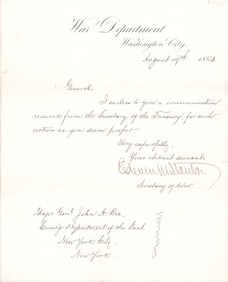 War Department
Washington City,
August 19th 1863
General
I enclose to you a communication
received from the Secretary of the Treasury for such
action as you deem proper.
Very respectfully
Your obedient servant
Edwin M Stanton
Secretary of War.
Major Genl John A. Dix,
Comdg Department of the East
New York City,
New York.